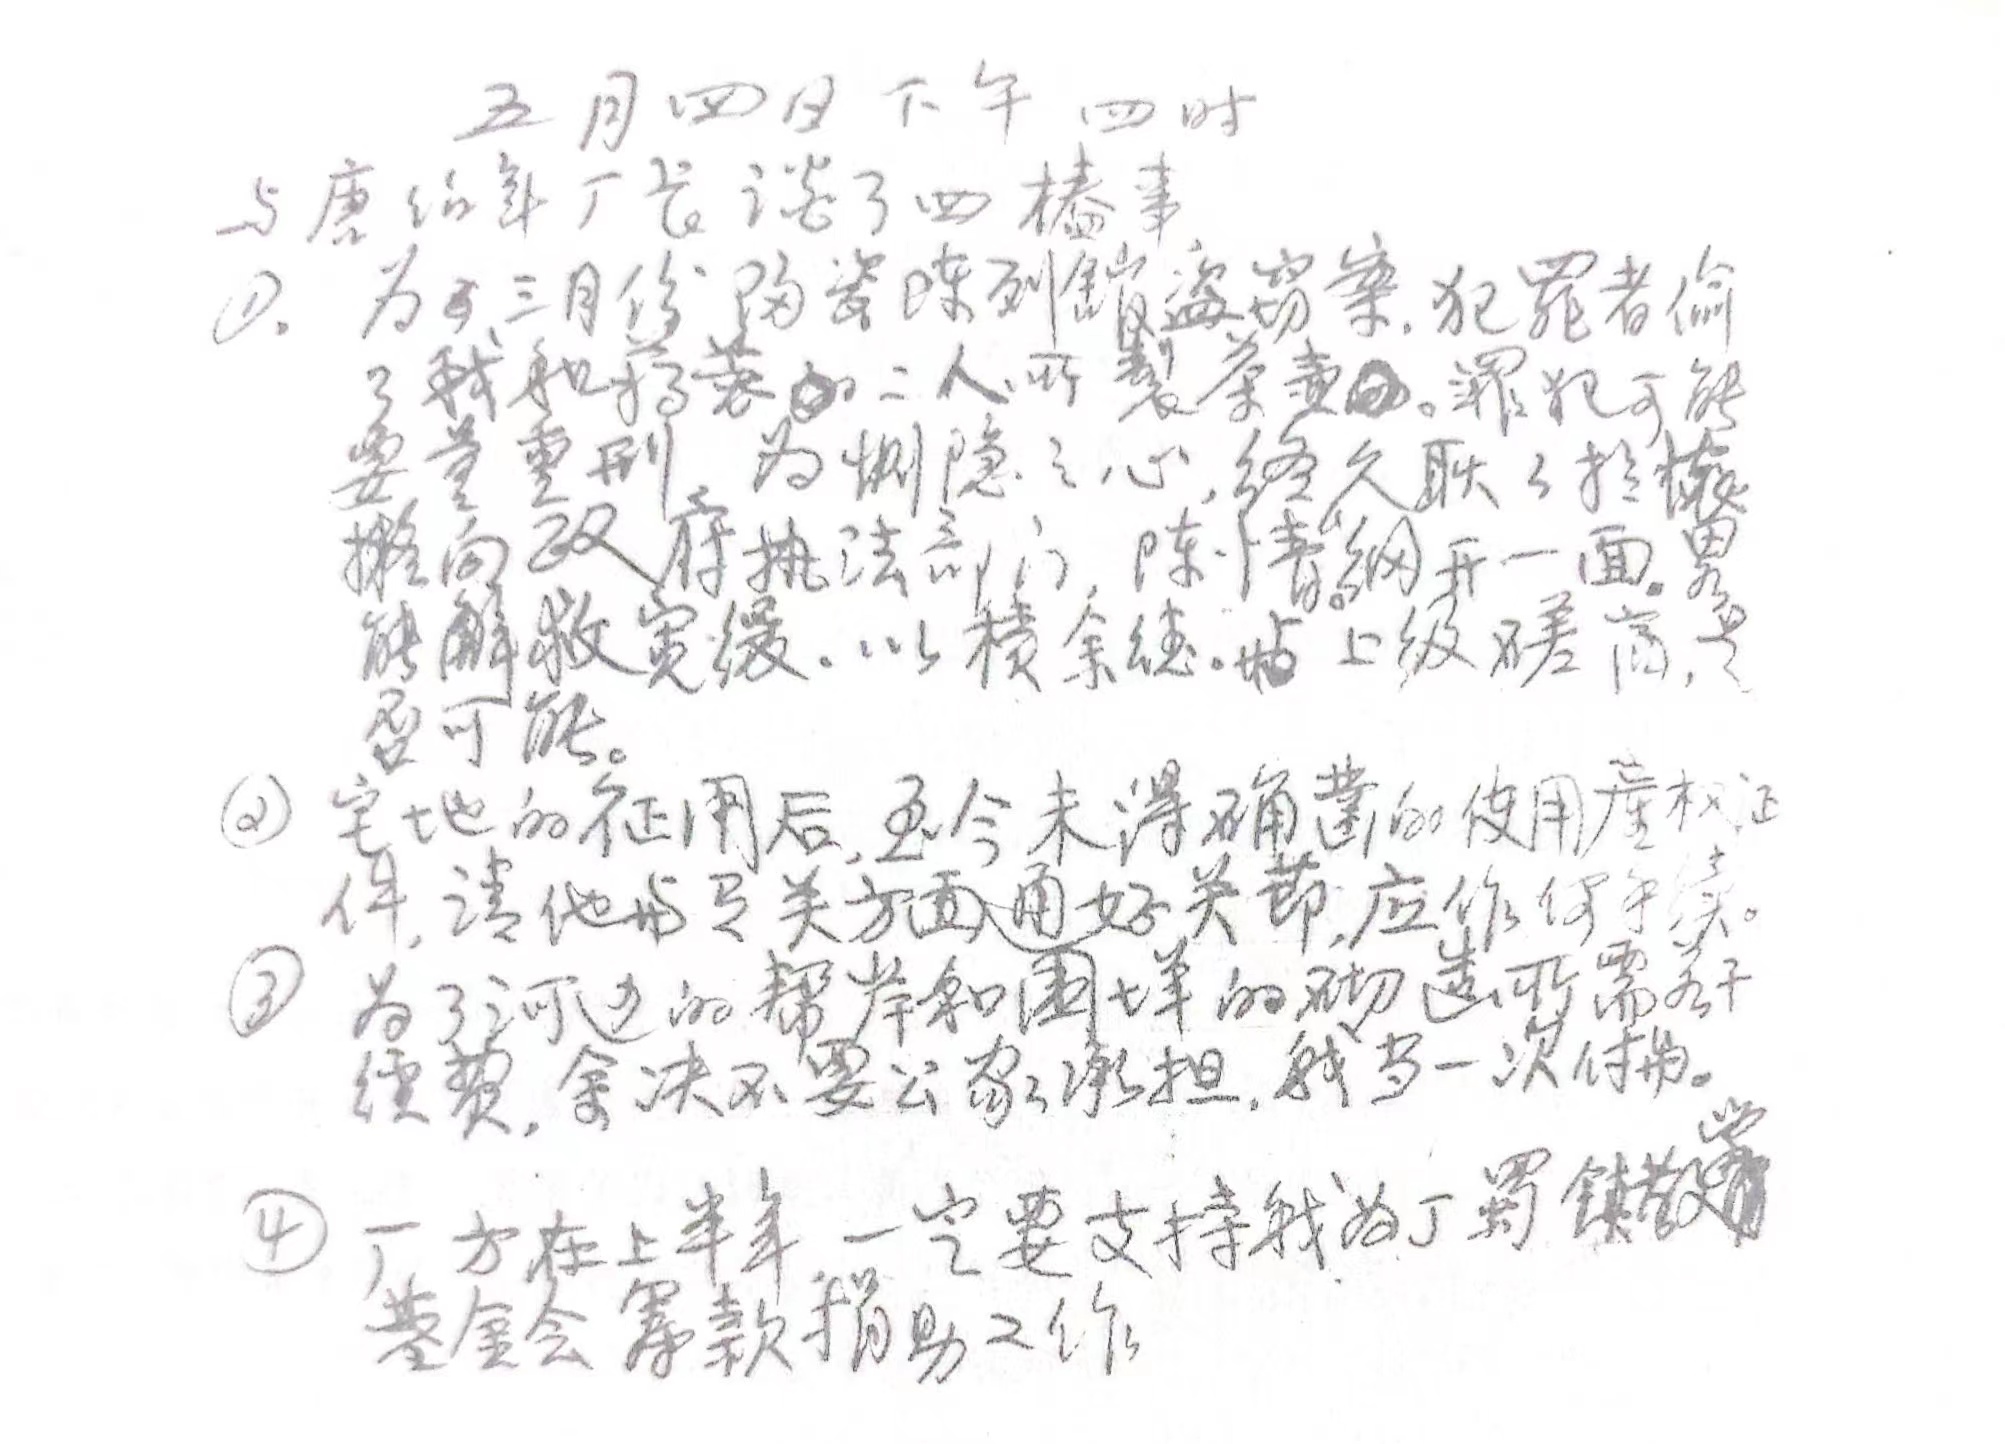 五月四日下午四时
与唐伯年厂长谈了四樁事
①. 为了三月份陶瓷陈列館盗窃案,犯罪者偷
了我和蒋蓉二人所製茶壶。罪犯可能
要量重刑 为惻隐之心,终久耿々於懷
擬向政府执法部门,陈情。網开一面。果
能解救宽缓。以積余德。与上级磋商,是
否可能。
② 宅地的征用后,至今未得确凿的使用產权证
件,请他与有关方面通好关節,应作何手续。
③ 为了河边的帮岸和围垟的砌造所需若干
经费,余决不要公家承担,我当一次付款。
④ 厂方在上半年一定要支持我为丁蜀镇教育
基金会募款捐助工作